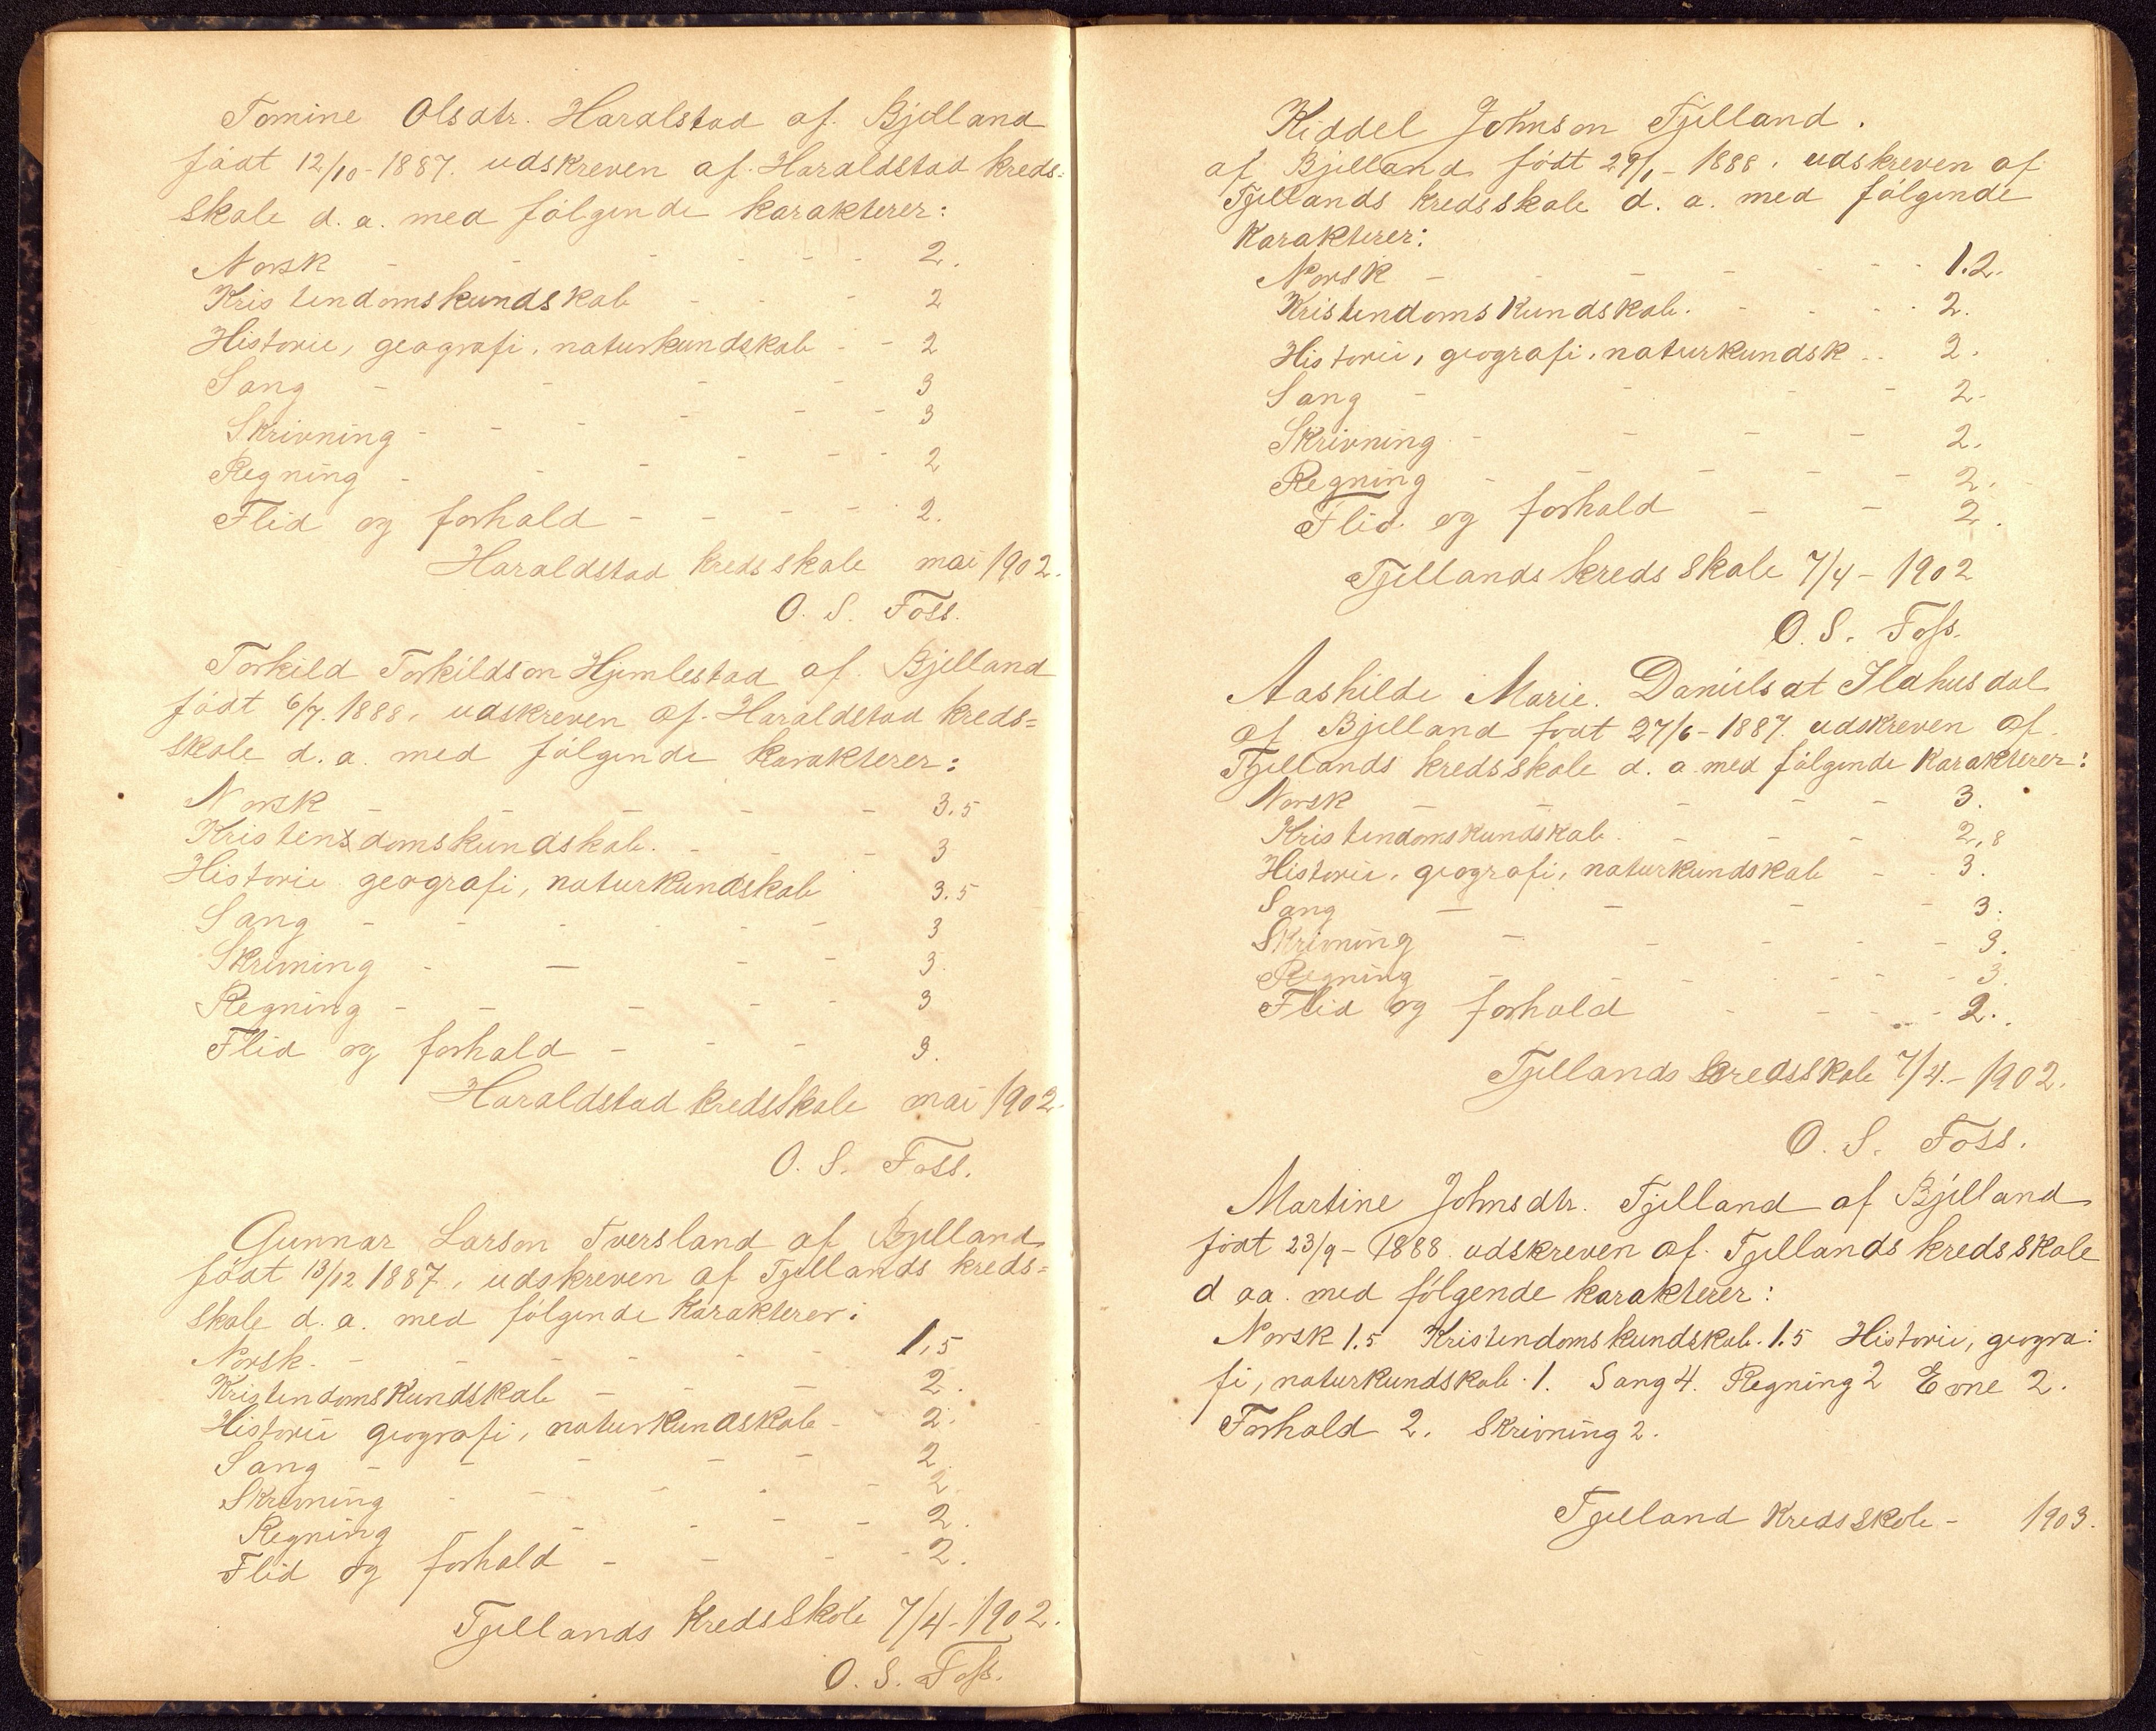 Tomine Olsdtr. Haralstad af. Bjelland
födt 12/10-1887. udskreven af. Haraldstad kreds-
skole d. a. med fölgende karakterer:
Norsk - - - - - - 2.
Kristendomskundskab - - - 2
Historie, geografi, naturkundskab - - 2
Sang - - - - 3
Skrivning - - - - - - 3
Regning - - - - - - 2
Flid og forhold - - - - - 2.
Haraldstad kredsskole mai 1902.
O. S. Foss.
Torkild Torkildson Hjemlestad af. Bjelland
födt 6/7. 1888, udskreven af. Haraldstad kreds=
skole d. a. med fölgende karakterer:
Norsk - - - - - 3.5
Kristendomskundskab. - - - 3
Historie geografi, naturkundskab 3.5
Sang - - - - - - 3
Skrivning - - - - 3.
Regning - - - - - 3
Flid og forhold - - - 3.
Haraldstad kredsskole mai 1902.
O. S. Foss.
Gunnar Larson Tversland af Bjelland
födt 13/12 1887, udskreven af Tjellands kreds=
skole d. a. med fölgende karakterer:
Norsk. - - - - - - 1,5
Kristendomskundskab - - - 2.
Historie geografi, naturkundskab - 2.
Sang - - - - - 2.
Skrivning - - - - - 2
Regning - - - - 2.
Flid og forhold - - - - 2.
Tjellands Kredsskole 7/4-1902.
O. S. Foss.
Kiddel Johnson Tjelland.
af Bjelland födt 29/1-1888. udskreven af
Tjellands kredsskole d. a. med fölgende
Karakterer:
Norsk - - - - - - 1.2.
Kristendomskundskab. - - - - 2.
Historie, geografi, naturkundsk - - 2.
Sang - - - - 2-
Skrivning - - - - 2.
Regning - - - - - 2.
Flid og forhold - - 2.
Tjellands kredsskole 7/4-1902
O. S. Foss.
Aashilde Marie. Danielsdt Ildhusdal
af Bjelland födt 27/6-1887. udskreven af
Tjellands kredsskole d. a. med fölgende karakterer:
Norsk - - - - - 3.
Kristendomskundskab. - - - 2,8
Historie, geografi, naturkundskab - - 3.
Sang - - - - 3.
Skrivning - - - - - 3.
Regning - - - - - - 3.
Flid og forhold - - - - 2.
Tjellands kredsskole 7/4.-1902.
O. S. Foss.
Martine Johnsdtr. Tjelland af Bjelland
födt 23/9-1888. udskreven af. Tjellands kredsskole
d aa. med fölgende karakterer:
Norsk 1.5 Kristendomskundskab. 1.5 Historie, geogra:
fi, naturkundskab. 1. Sang 4. Regning 2 Evne 2.
Forhold 2. Skrivning 2.
Tjelland Kredsskole - 1903.